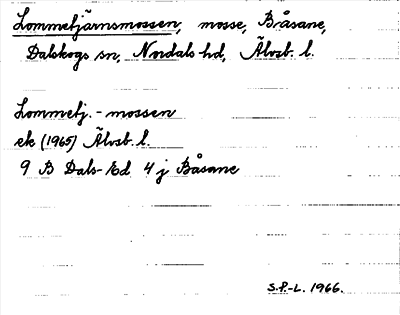 Lommetjärnsmossen, mosse, Bråsane,
Dalskogs sn, Nordals hd, Älvsb. l.
Lommetj.-mossen
ek (1965) Älvsb. l.
9 B Dals-Ed 4 j Båsane
S.P.-L. 1966.